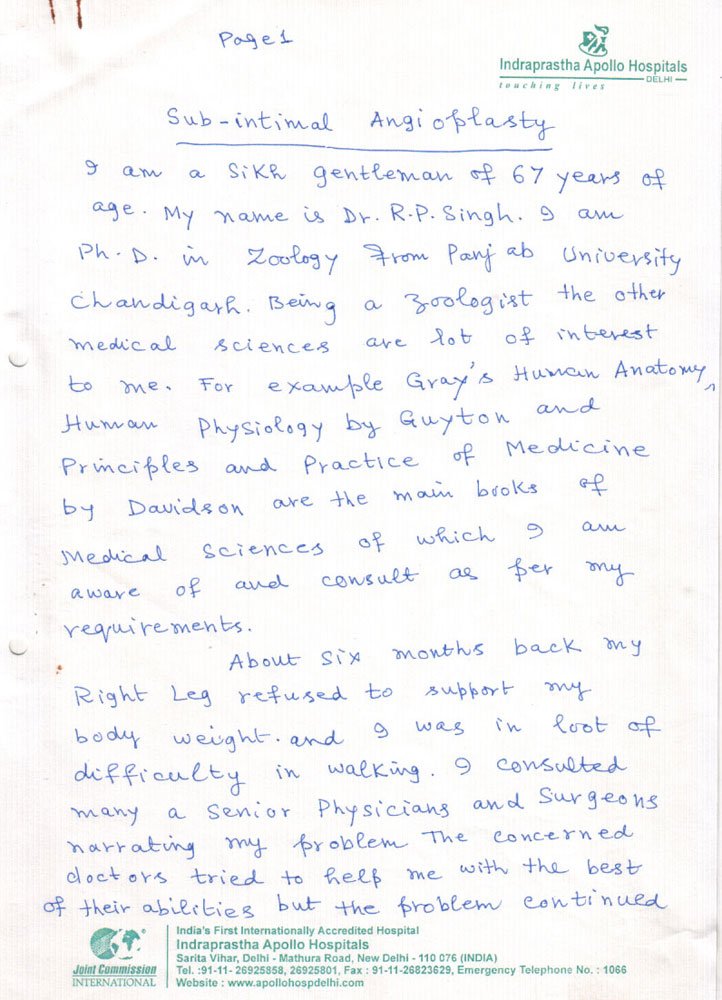 Page 1
Indraprastha Apollo Hospitals
DELHI
touching lives
Sub-intimal Angioplasty
I am a Sikh gentleman of 67 years of
age. My name is Dr. R.P. Singh. I am
Ph.D. in Zoology from Panjab University
Chandigarh. Being a zoologist the other
medical sciences are lot of interest
to me. For example Gray's Human Anatomy,
Human Physiology by Guyton and
Principles and Practice of Medicine
by Davidson are the main books of
Medical Sciences of which I am
aware of and consult as per my
requirements.
About six months back my
Right Leg refused to support my
body weight. and I was in loot of
difficulty in walking. I consulted
many a Senior Physicians and Surgeons
narrating my problem The concerned
doctors tried to help me with the best
of their abilities but the problem continued
Joint Commission
INTERNATIONAL
India's First Internationally Accredited Hospital
Indraprastha Apollo Hospitals
Sarita Vihar, Delhi - Mathura Road, New Delhi - 110 076 (INDIA)
Tel. :91-11- 26925858, 26925801, Fax : 91-11-26823629, Emergency Telephone No. : 1066
Website : www.apollohospdelhi.com